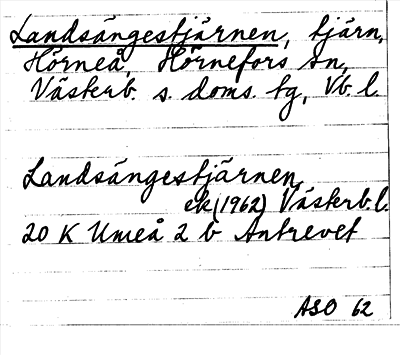 Landsängestjärnen, tjärn,
Hörneå, Hörnefors sn,
Västerb. s. doms. tg, Vb. l.
Landsängestjärnen,
ek (1962) Västerb. l.
20 K Umeå 2 b Antrevet
ASO 62